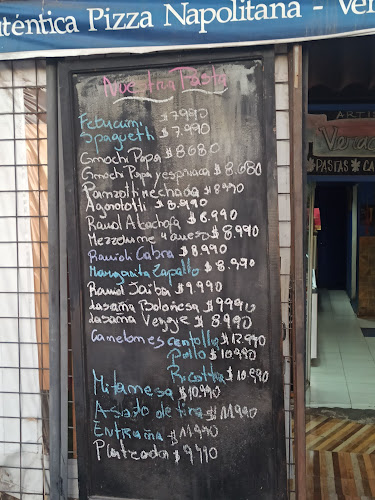 uténtica Pizza Napolitana - Ve
ARTE
PASTAS CA
Nuestra Pasta
Fetuccini $7990
Spaguetti $7.990
Gnochi Papa $8.680
Gnochi Papa y espinaca $8.680
Panzotti mechada $8990
Agnolotti $8.990
Raviol Alcachofa $8.990
Mezzelune 4 queso $8.990
Raviol Cabra $8.990
Margarita Zapallo $8.990
Raviol Jaiba $9.990
Lasaña Boloñesa $9990
Lasaña Veggie $8.990
Canelones centolla $12.990
Pollo $10.990
Ricotta $10.990
Milanesa $10.990
Asado de tira $11.990
Entraña $11.990
Plateada $9.990